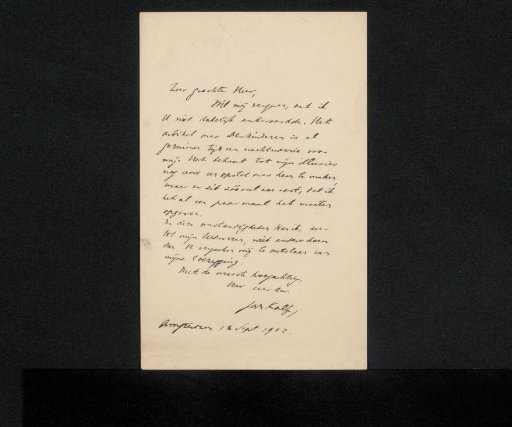 Zeer geachte Heer,
Wil mij vergeven, dat ik
U niet dadelijk antwoordde. Het
artikel over Derkinderen is al
geruimen tijd een nachtmerrie voor
mij. Het behoort tot mijn illusies
nog eens een opstel over hem te maken,
maar er zit zóóveel aan vast, dat ik
het al een paar maal heb moeten
opgeven.
In deze omstandigheden kan ik, zeer
tot mijn leedwezen, niet anders doen
dan U verzoeken mij te ontslaan van
mijne toezegging.
Met de meeste hoogachting
Uw
Jan Kalf,
Amsterdam 12 Sept 1902.